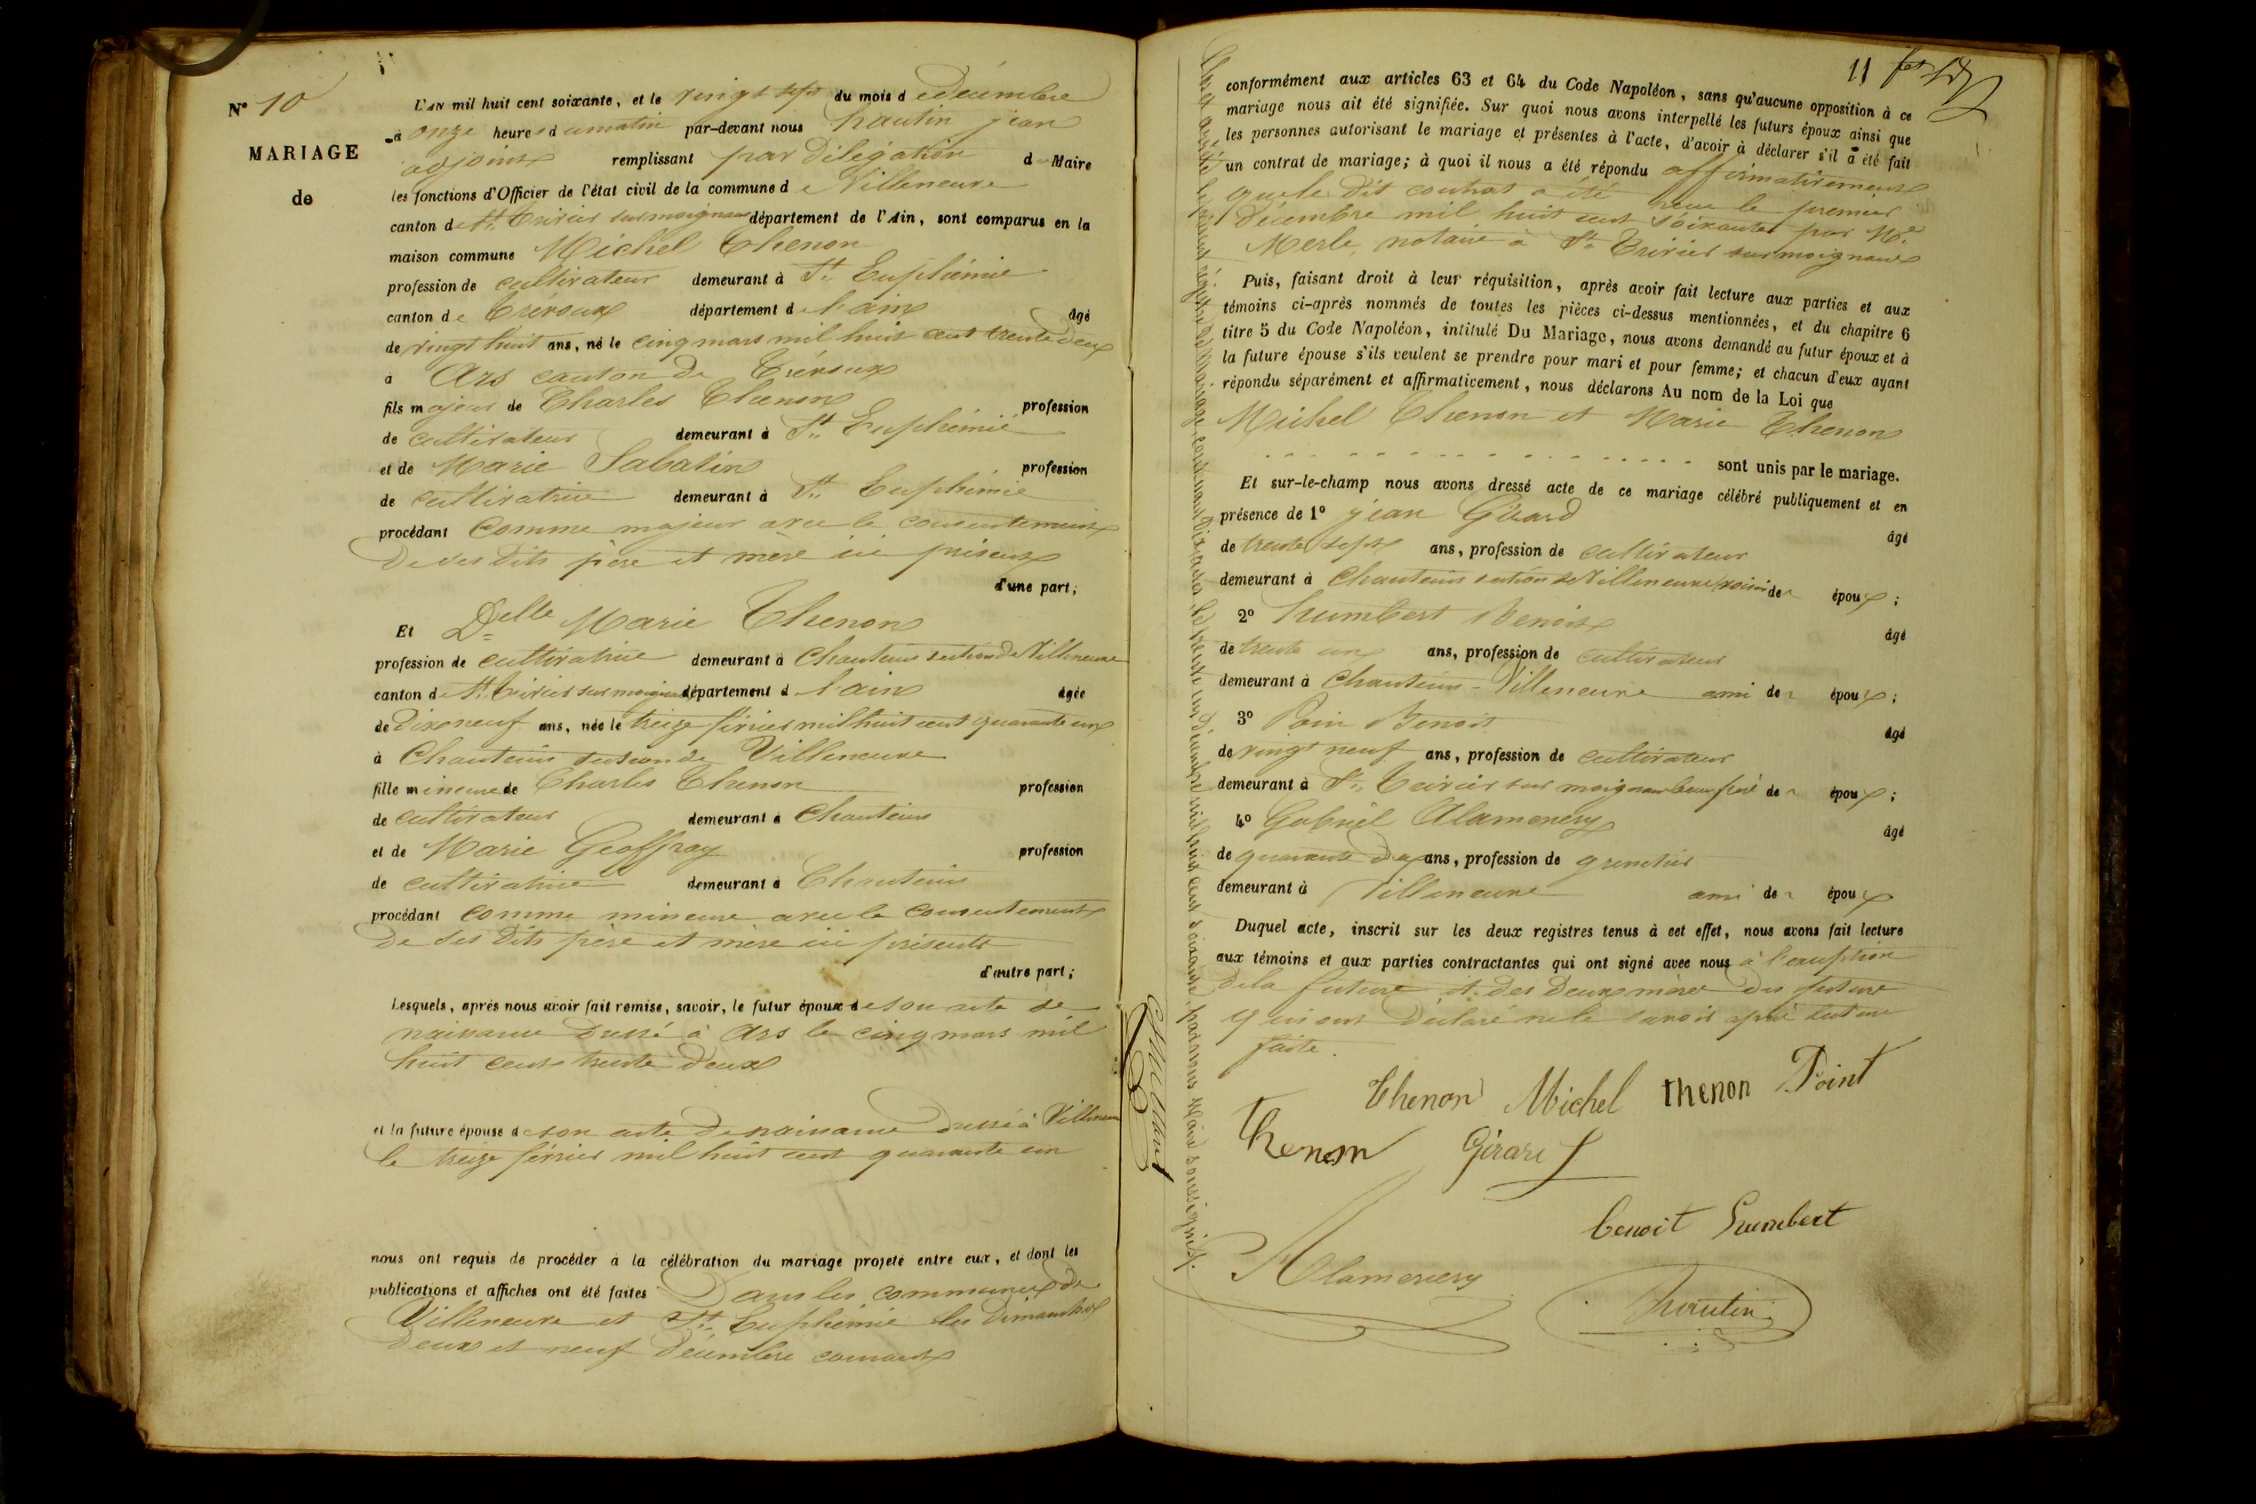 N° 10
MARIAGE
de
L'AN mil huit cent soixante, et le vingt sept du mois d e décembre
à onze heures du matin par-devant nous hautin jean
adjoint remplissant par délégation d Maire
les fonctions d'Officier de l'état civil de la commune d e Villeneuve
canton de St. Trivier sur moignans département de l'Ain, sont comparus en la
maison commune Michel Thenon
profession de cultivateur demeurant à Ste Euphémie
canton de Trévoux département de l'ain âgé
de vingt huit ans, né le cinq mars mil huit cent trente deux
à Ars canton de Trévoux
fils majeur de Charles Thenon profession
de cultivateur demeurant à Ste Euphémie
et de Marie Sabatin profession
de cultivatrice demeurant à Ste Euphémie
procédant comme majeur avec le consentement
de ses dits père et mère ici présents
d'une part;
Et Delle Marie Thenon
profession de cultivatrice demeurant à Chanteins section de Villeneuve
canton de St. Trivier sur moignans département de l'ain âgée
de Dixneuf ans, née le treize février mil huit cent quarante un
à Chanteins section de Villeneuve
fille mineure de Charles Thenon profession
de cultivateur demeurant à Chanteins
et de Marie Geoffray profession
de cultivatrice demeurant à Chanteins
procédant comme mineure avec le consentement
de ses dits père et mère ici présents
d'autre part;
Lesquels, après nous avoir fait remise, savoir, le futur époux de son acte de
naissance dressé à Ars le cinq mars mil
huit cent trente deux
et la future épouse de son acte de naissance dressé à Villeneuve
le treize février mil huit cent quarante un
nous ont requis de procéder à la célébration du mariage projeté entre eux, et dont les
publications et affiches ont été faites Dans les communes de
Villeneuve et Ste Euphémie les Dimanches
deux et neuf Décembre courant
11
conformément aux articles 63 et 64 du Code Napoléon, sans qu'aucune opposition à ce
mariage nous ait été signifiée. Sur quoi nous avons interpellé les futurs époux ainsi que
les personnes autorisant le mariage et présentes à l'acte, d'avoir à déclarer s'il a été fait
un contrat de mariage; à quoi il nous a été répondu affirmativement
que le dit contrat a été reçu le premier
décembre mil huit cent soixante par Me
Merle, notaire à St. Trivier sur moignans
Puis, faisant droit à leur réquisition, après avoir fait lecture aux parties et aux
témoins ci-après nommés de toutes les pièces ci-dessus mentionnées, et du chapitre 6
titre 5 du Code Napoléon, intitulé Du Mariage, nous avons demandé au futur époux et à
la future épouse s'ils veulent se prendre pour mari et pour femme; et chacun d'eux ayant
répondu séparément et affirmativement, nous déclarons Au nom de la Loi que
Michel Thenon et Marie Thenon
sont unis par le mariage.
Et sur-le-champ nous avons dressé acte de ce mariage célébré publiquement et en
présence de 1° jean Girard âgé
de trente sept ans, profession de cultivateur
demeurant à Chanteins section de Villeneuve voisin des époux;
2° humbert Benoit âgé
de trente un ans, profession de cultivateur
demeurant à Chanteins - Villeneuve ami des époux;
3° Poin Benoit âgé
de vingt neuf ans, profession de cultivateur
demeurant à St. Trivier sur moignans beau frère des époux;
4° Gabriel Alamercery âgé
de quarante deux ans, profession de
demeurant à Villeneuve ami des époux
Duquel acte, inscrit sur les deux registres tenus à cet effet, nous avons fait lecture
aux témoins et aux parties contractantes qui ont signé avec nous à l'exception
de la future et des deux mères des futurs
qui ont déclaré ne le savoir après lecture
faite.
Thenon Michel thenon Point
thenon Girard
benoit humbert
Alamercery
hautin
Clos et arrêté le présent registre de Mariage contenant dix actes, le trente un décembre mil huit cent soixante, par nous Maire soussigné.